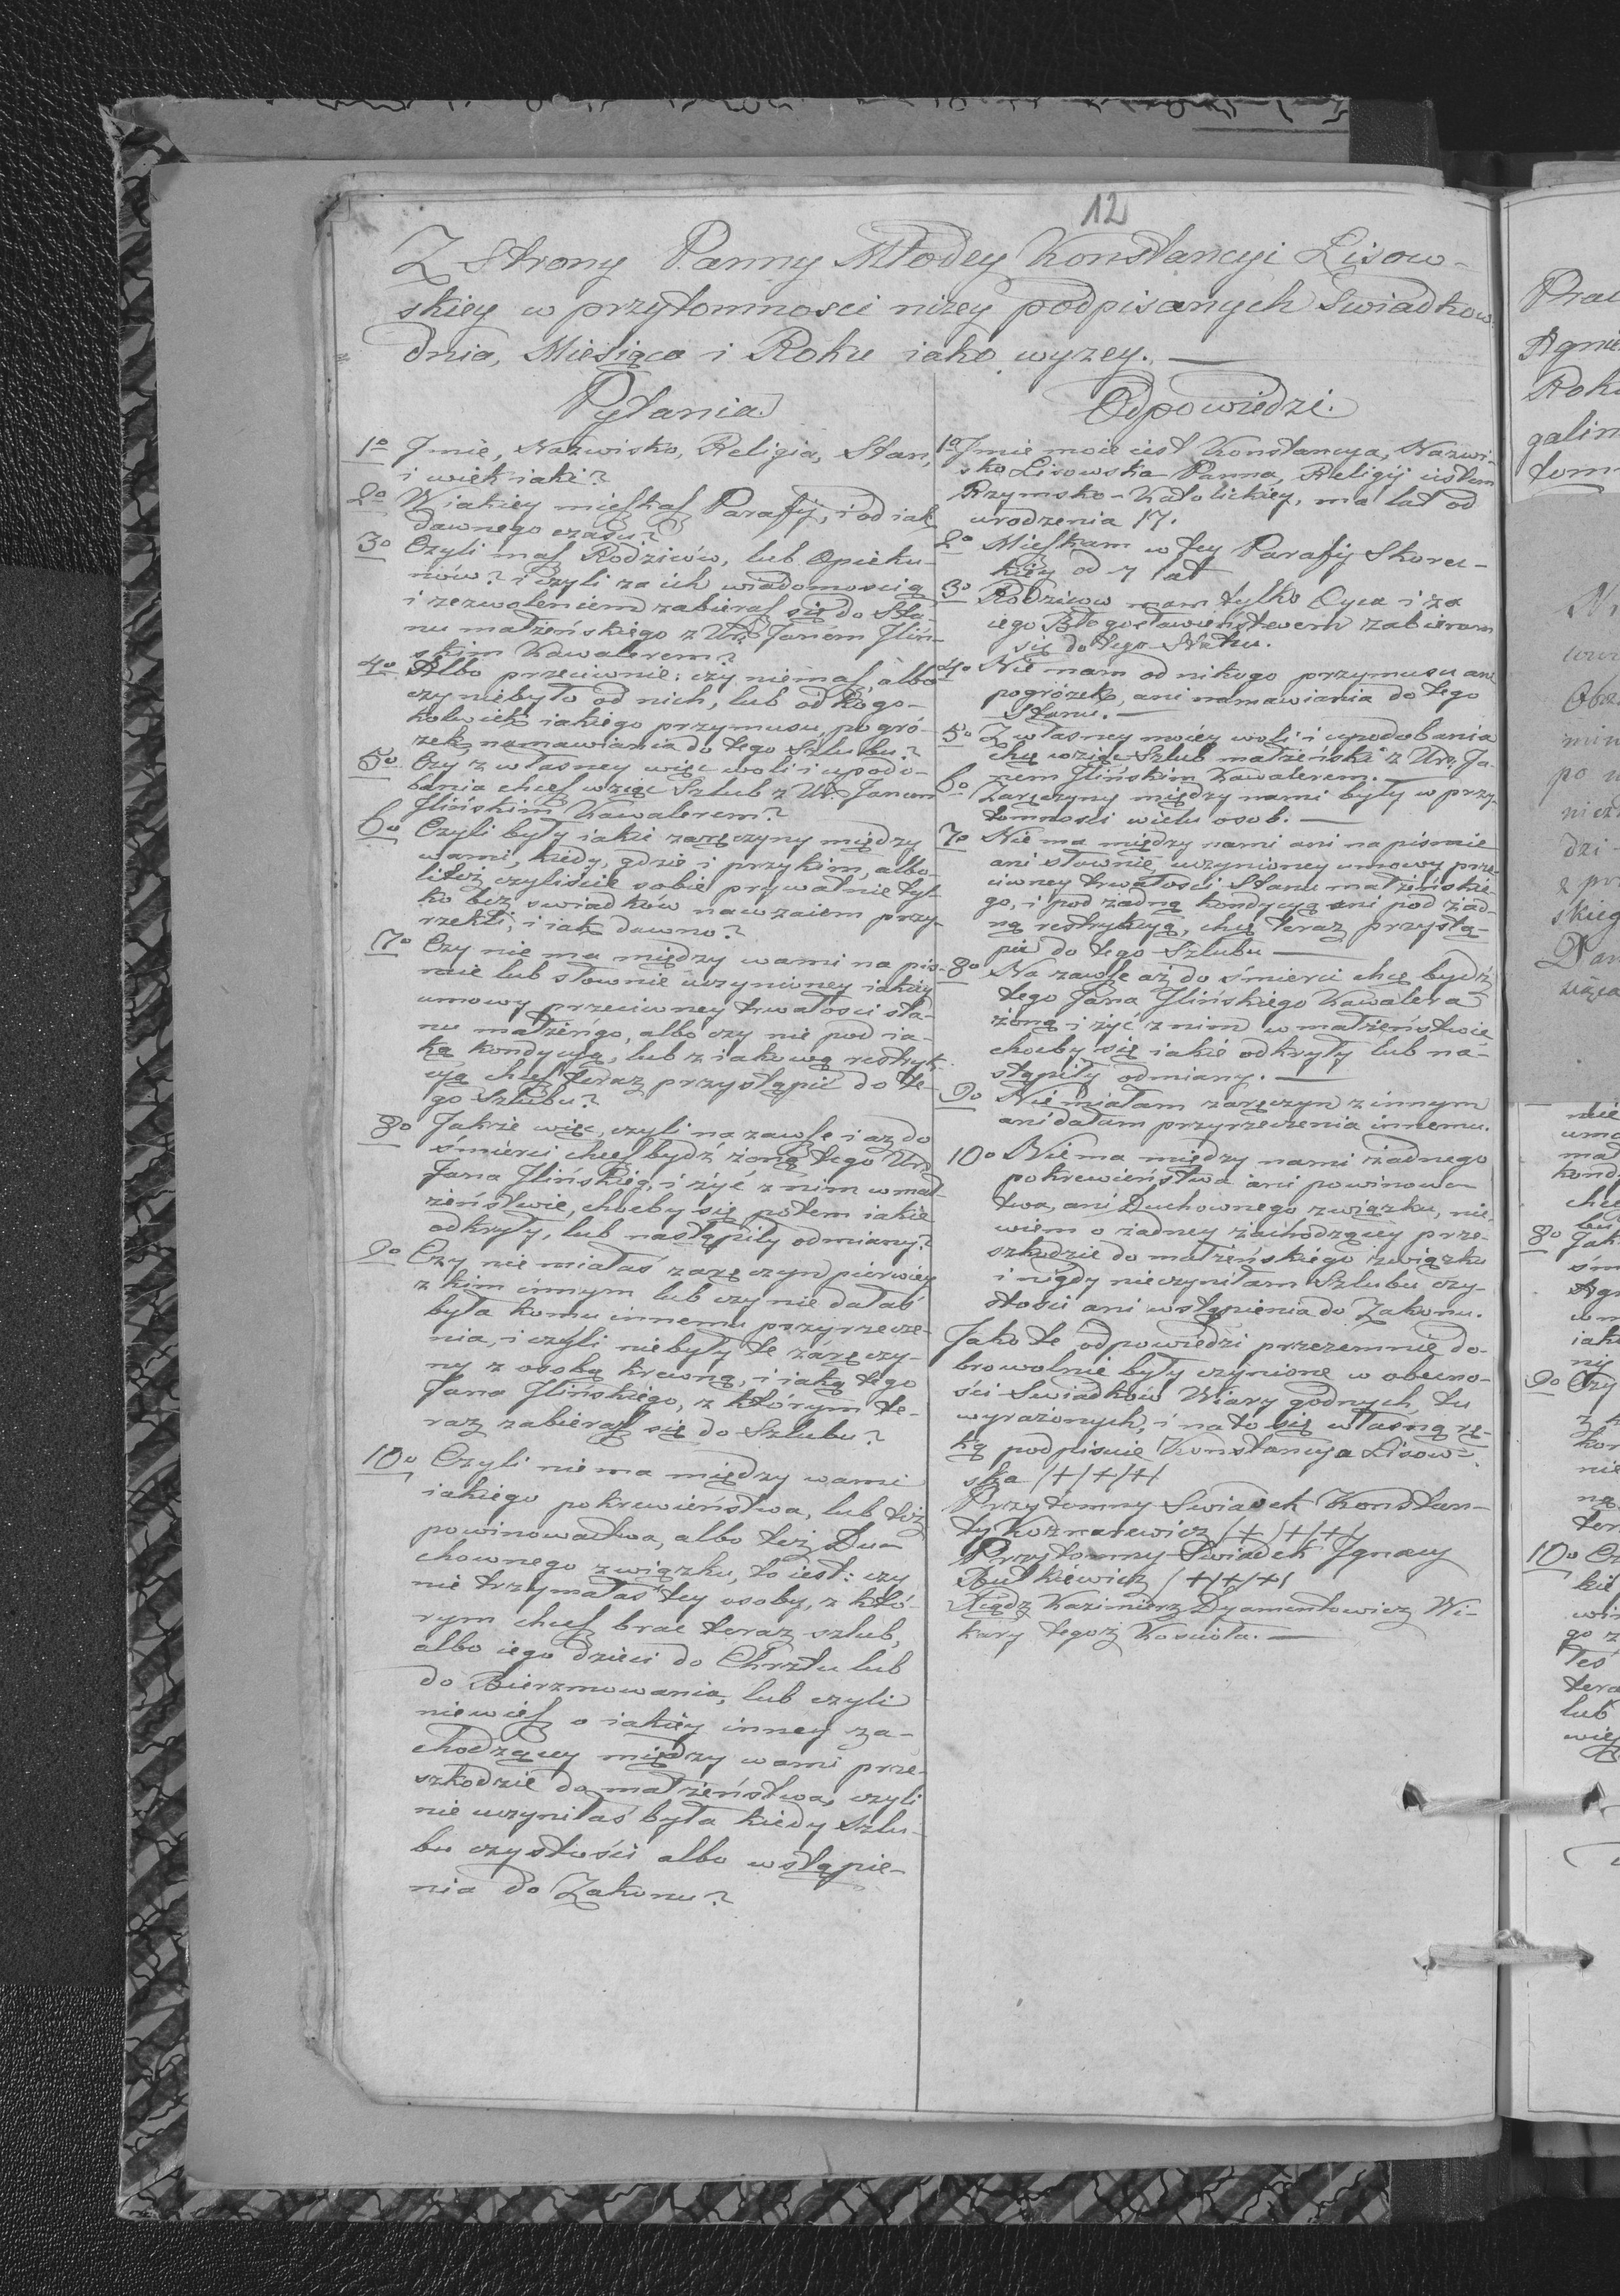 12
Z Strony Panny Młodey Konstancyi Lisow-
skiey w przytomnosci nizey podpisanych Swiadkow
dnia, Miesiąca i Roku iako wyzey. —
Pytania
1o Jmie, Nazwisko, Religia, Stan,
i wiek iaki?
2o W iakiey mieszkasz Parafij, i od iak
dawnego czasu?
3o Czyli masz Rodziców, lub Opieku-
nów? i czyli za ich wiadomoscią
i zezwoleniem zabierasz się do Sta-
nu małżeńskiego z Ur. Janem Jliń-
skim Kawalerem?
4o Albo przeciwnie: czy niemasz, albo
czy niebyło od nich, lub od kogo-
kolwiek iakiego przymusu, pogró-
zek, namawiania do tego Szlubu?
5o Czy z własney więc woli i upodo-
bania chcesz wziąc Szlub z Ur. Janem
Jlińskim Kawalerem?
6o Czyli były iakie zaręczyny między
wami, kiedy, gdzie i przy kim, albo-
liteż czyliście sobie prywatnie tyl-
ko bez swiadków nawzaiem przy-
rzekli; i iak dawno?
7o Czy nie ma między wami na piś-
mie lub słownie uczynioney iakiey
umowy przeciwney trwałosci sta-
nu małżengo, albo czy nie pod ia-
ką kondycyą, lub z iakową restryk-
cyą chcesz teraz przystąpić do te-
go Szlubu?
8o Jakże więc, czyli na zawsze i aż do
śmierci chcesz bydź żoną tego Ur.
Jana Jlińskieg, i żyć z nim w mał-
żeństwie, choćby się potem iakie
odkryły, lub nastąpiły odmiany?
9o Czy nie miałaś zaręczyn pierwiey
z kim innym lub czy nie dałaś
była komu innemu przyrzecze-
nia, i czyli niebyły te zaręczy-
ny z osobą krewną, i iaką tego
Jana Jlińskiego, z którym te-
raz zabierasz się do Szlubu?
10o Czyli nie ma między wami
iakiego pokrewieństwa, lub też
powinowactwa, albo też Du-
chownego związku, to iest: czy
nie trzymałaś tey osoby, z któ-
rym chcesz brac teraz szlub,
albo iego dzieci do Chrztu lub
do Bierzmowania, lub czyli
niewiesz o iakiey inney za-
chodzącey między wami prze-
szkodzie do małżeństwa, czyli
nie uczyniłaś była kiedy Szlu-
bu czystości albo wstąpie-
nia do Zakonu?
Odpowiedzi.
1o Jmie moie iest Konstancya, Nazwi-
sko Lisowska Panna, Religij iestem
Rzymsko-Katolickiey, ma lat od
urodzenia 17.
2o Mieszkam w tey Parafij Skorec-
kiey od 7 lat
3o Rodzicow mam tylko Oyca i za
iego Błogosławieństwem zabieram
się do tego Szlubu.
4o Nie mam od nikogo przymusu ani
pogrózek, ani namawiania do tego
Stanu. —
5o Z własney moiey woli i upodobania
chcę wziąc Szlub małżeński z Ur. Ja-
nem Jlińskim Kawalerem. —
6o Zaręczyny między nami były w przy-
tomności wielu osob. —
7o Nie ma między nami ani na pismie
ani słownie uczynioney umowy prze-
ciwney trwałosci Stanu małżeńskie-
go, i pod żadną kondycyą ani pod żad-
ną restrykcyą, chcę teraz przystą-
pić do tego Szlubu —
8o Na zawsze aż do śmierci chcę bydź
tego Jana Jlińskiego Kawalera
żoną i żyć z nim w małżeństwie
choćby się iakie odkryły lub na-
stąpiły odmiany. —
9o Nie miałam zaręczyn z innym
ani dałam przyrzeczenia innemu.
10o Niema między nami żadnego
pokrewieństwa ani powinowa-
twa, ani Duchownego związku, nie-
wiem o żadney zachodzącey prze-
szkodzie do małżeńskiego związku
i nigdy nieczyniłam Szlubu czy-
stości ani wstąpienia do Zakonu.
Jako te odpowiedzi przezemnię do-
browolnie były czynione w obecno-
ści Swiadków Wiary godnych, tu
wyrażonych, i na to się własną rę-
ką podpisuie Konstancya Lisow-
ska /+/+/+/
Przytomny Swiadek Konstan-
ty Koznarewicz /+/+/+/
Przytomny Swiadek Jgnacy
Butkiewicz /+/+/+/
Xiądz Kazimierz Dyamentowicz Wi-
kary tegoż Kosciola. —